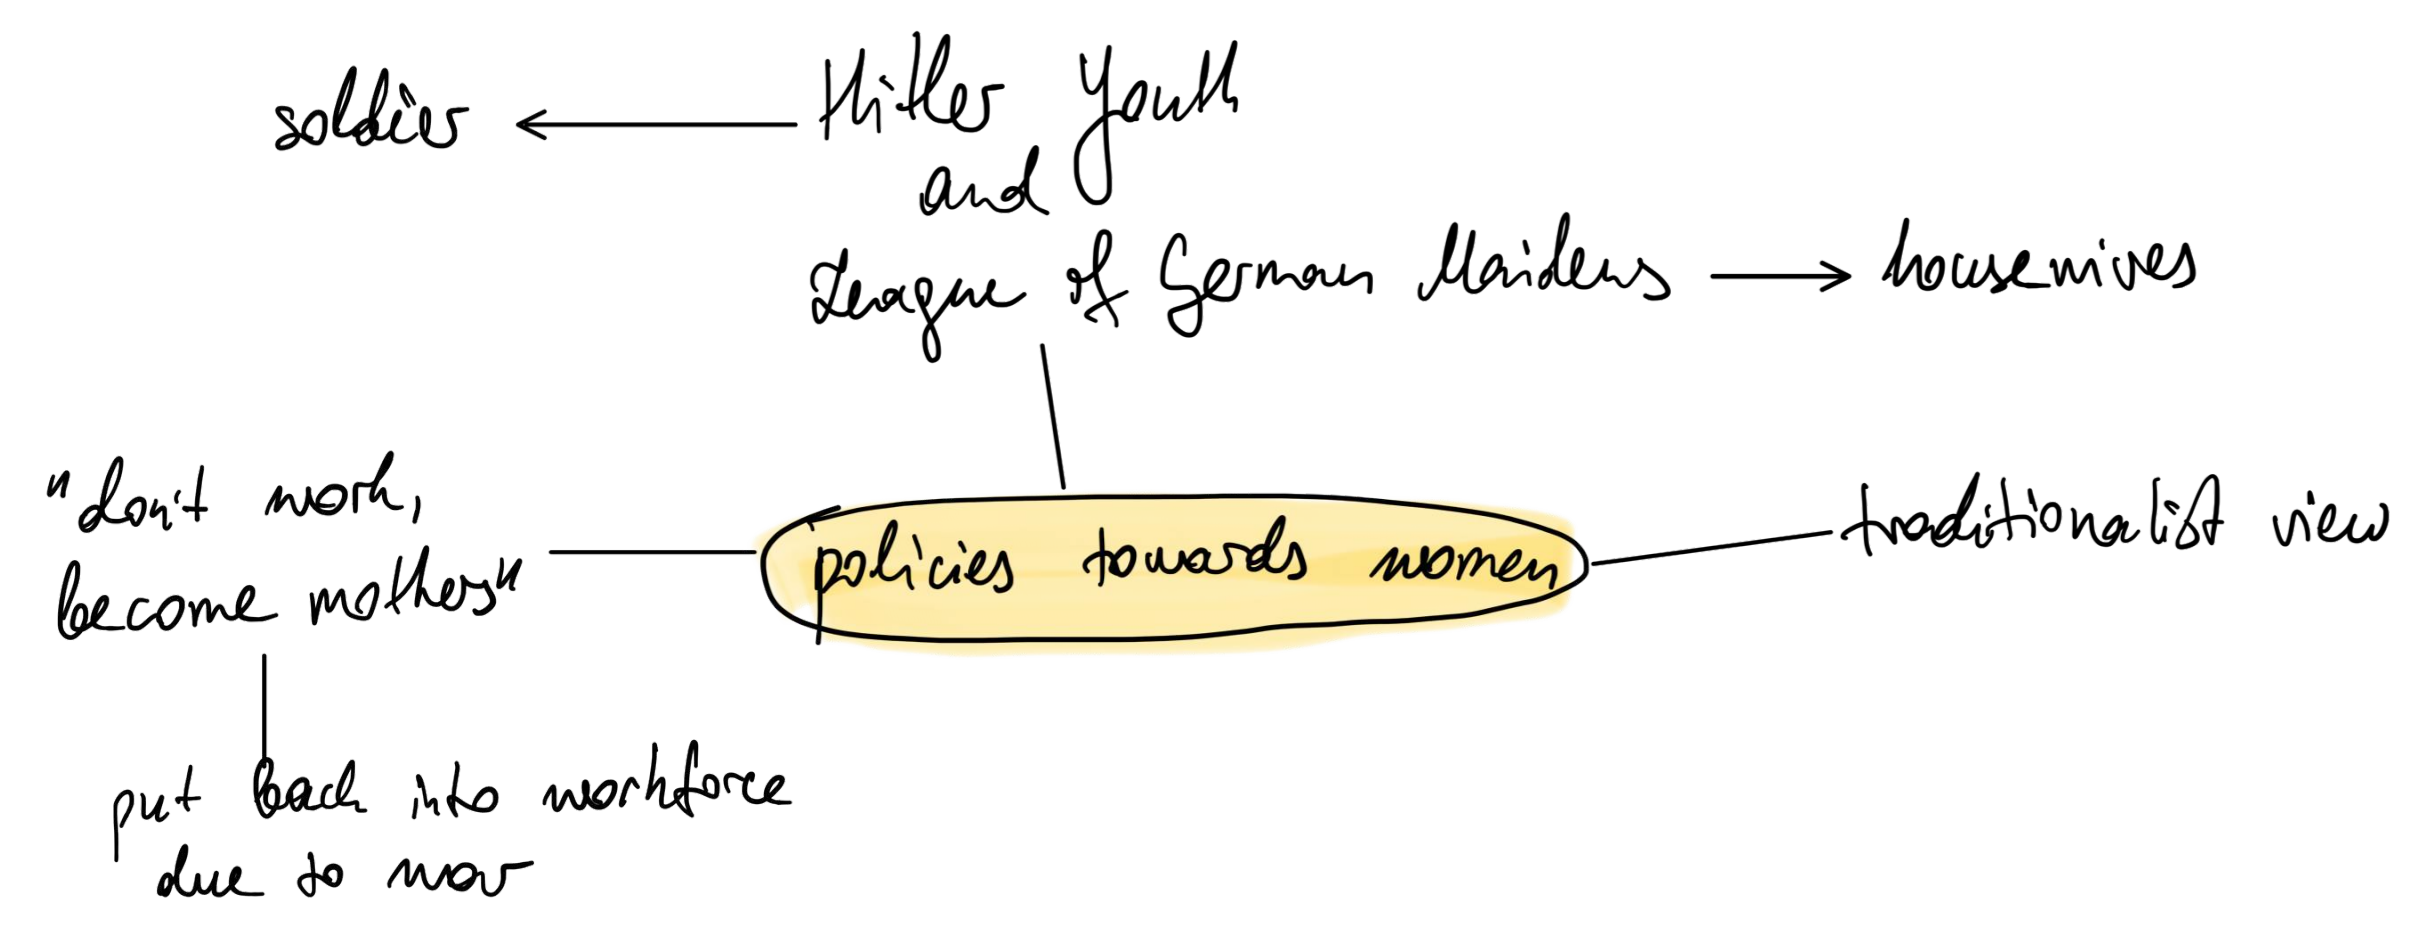 soldier
Hitler Youth
and
League of German Maidens
housewives
"don't work,
become mothers"
policies towards women
traditionalist view
put back into workforce
due to war